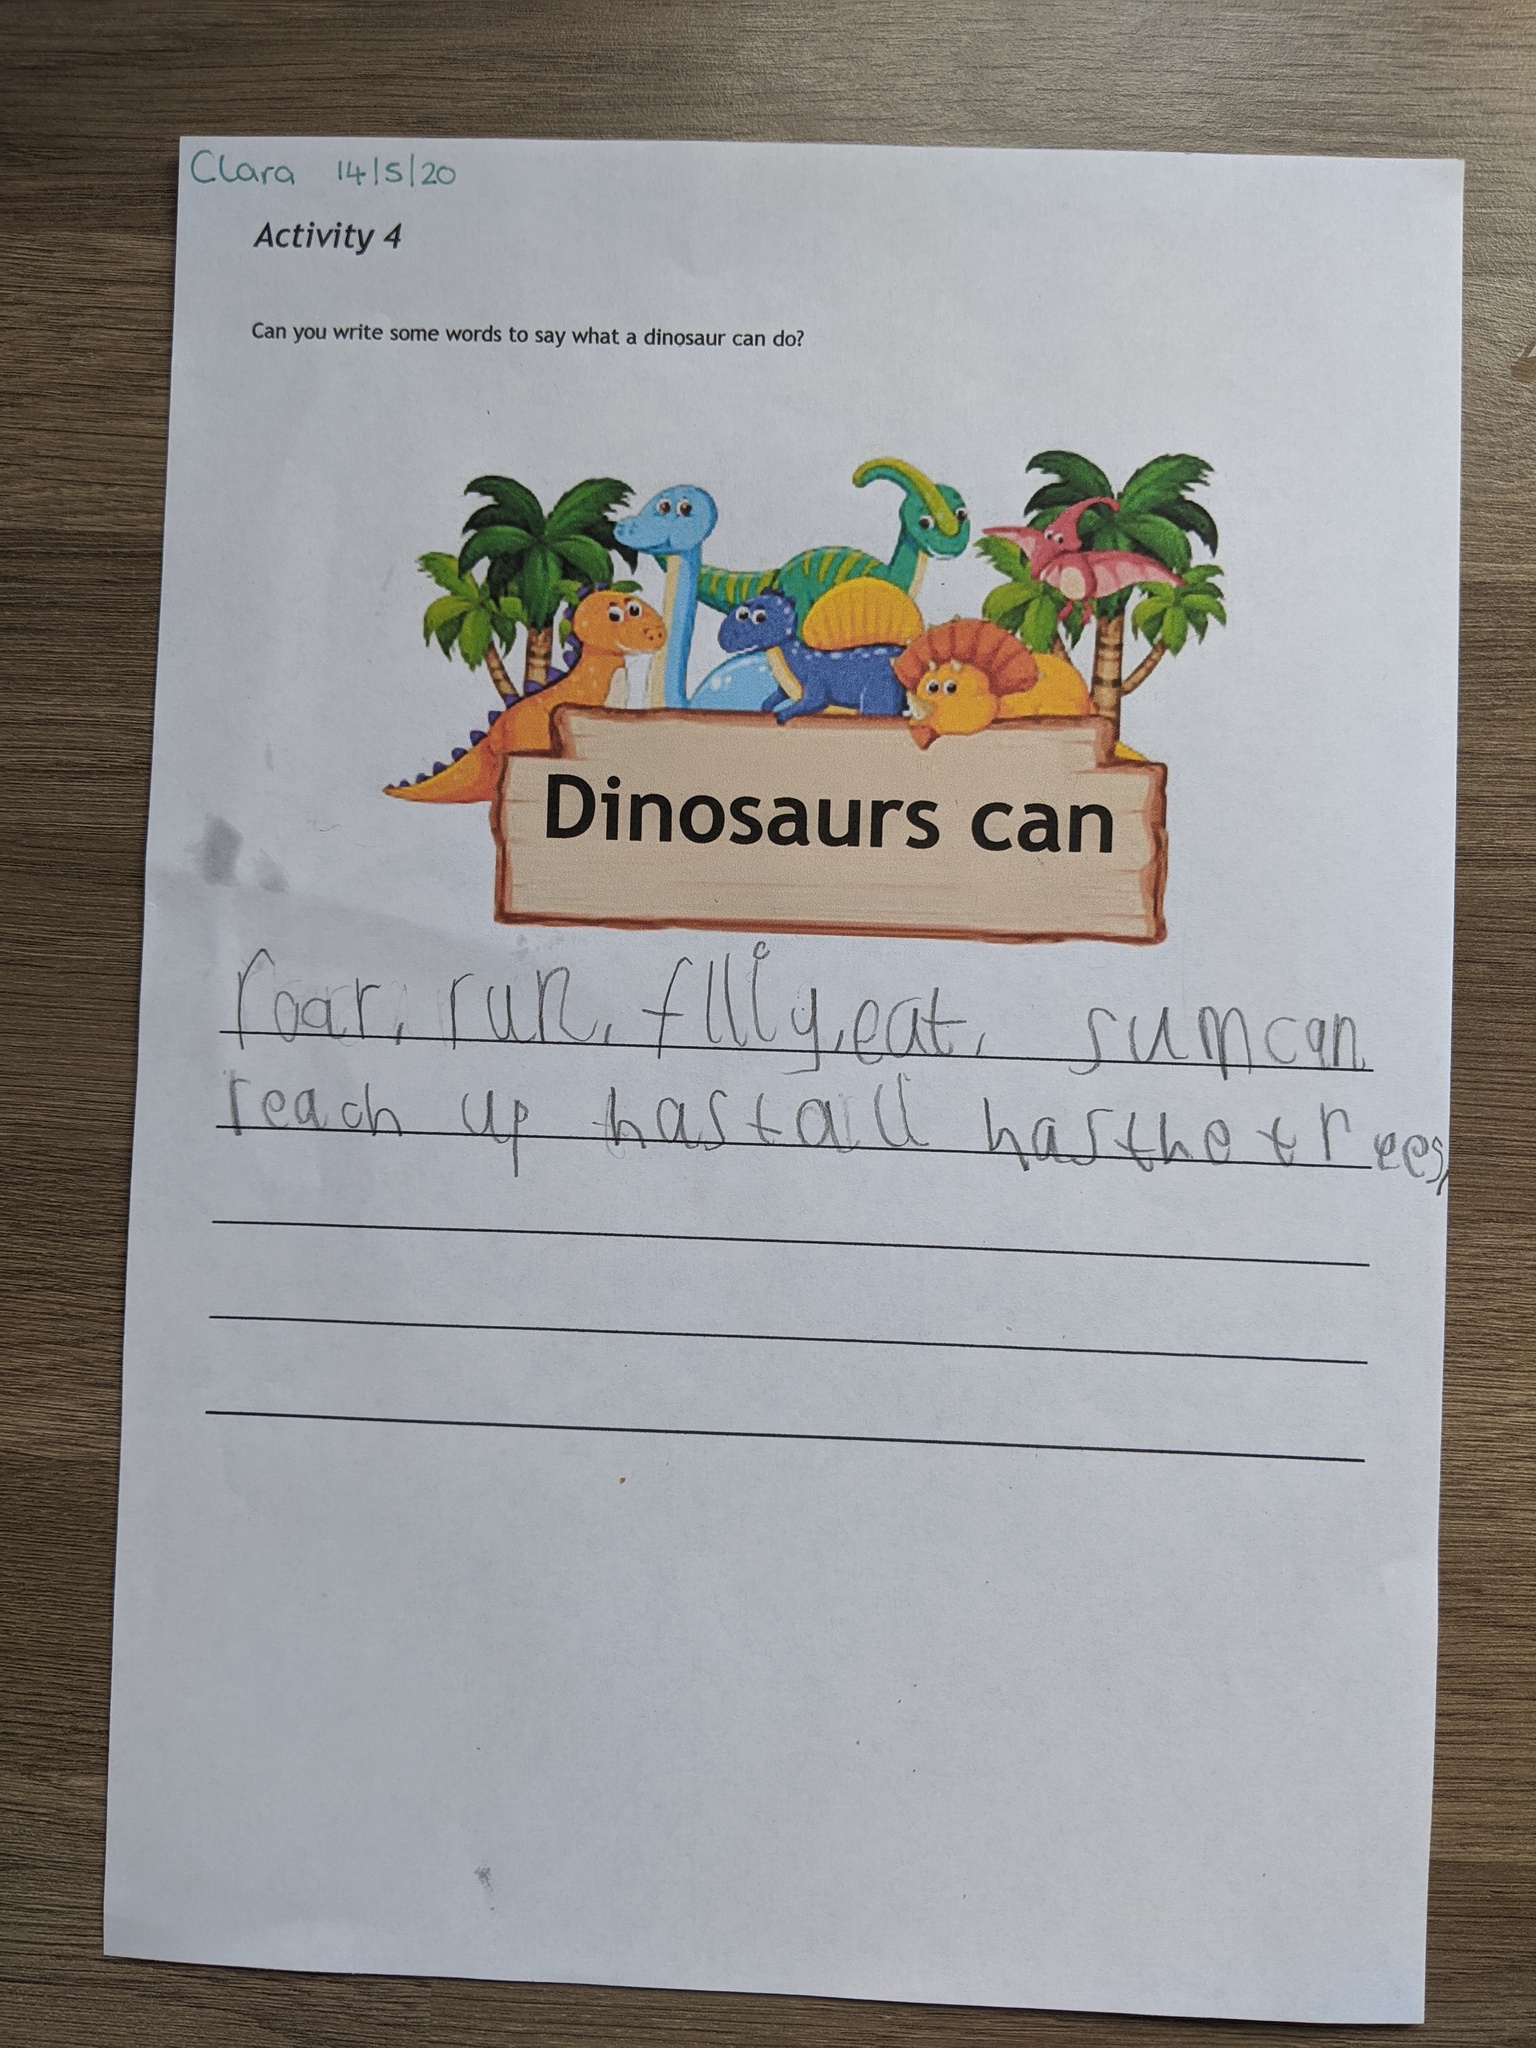 Clara 14/5/20
Activity 4
Can you write some words to say what a dinosaur can do?
Dinosaurs can
roar, run, flliy, eat, sum can
reach up has tall has the trees,